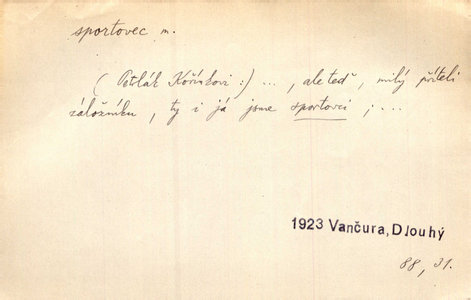 sportovec m.
( Petrlák Kořínkovi :) ..., ale teď, milý příteli
záložníku, ty i já jsme sportovci; ....
1923 Vančura, Dlouhý
88, 31.